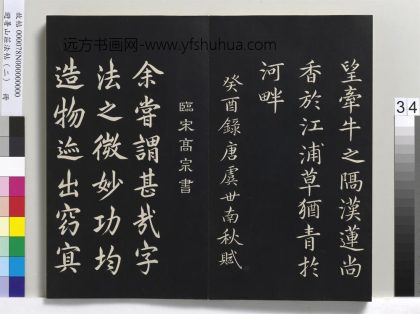 望牽牛之隔漢蓮尚
香於江浦草猶青於
河畔
癸酉錄唐虞世南秋賦
臨宋高宗書
余嘗謂甚哉字
法之微妙功均
造物迹出窈冥
远方书画网-www.yfshuhua.com
故帖 000078N00000000
避暑山莊法帖(二) 冊
3 4